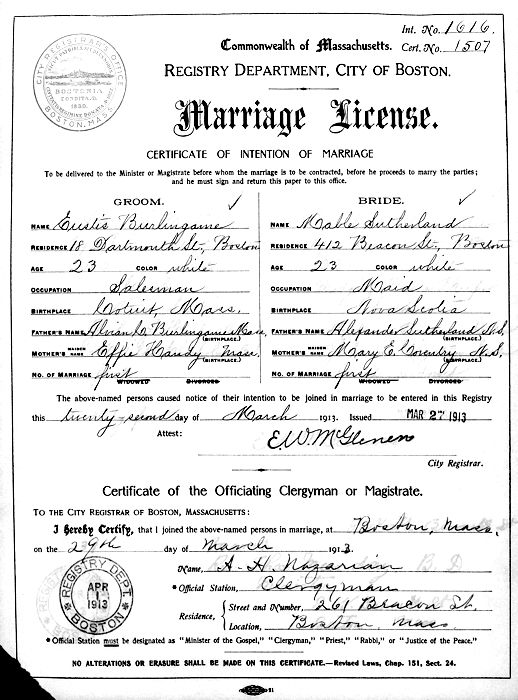 Int. No. 1616
Commonwealth of Massachusetts. Cert. No. 1507
CITY REGISTRAR'S OFFICE
BOSTONIA
CONDITA A.D.
1630.
BOSTON, MASS.
REGISTRY DEPARTMENT, CITY OF BOSTON.
Marriage License.
CERTIFICATE OF INTENTION OF MARRIAGE
To be delivered to the Minister or Magistrate before whom the marriage is to be contracted, before he proceeds to marry the parties;
and he must sign and return this paper to this office.
GROOM.
NAME Eustis Burlingame
RESIDENCE 18 Dartmouth St., Boston
AGE 23 COLOR white
OCCUPATION Salesman
BIRTHPLACE Cotuit, Mass.
FATHER'S NAME Burlingame Mass.
(BIRTHPLACE.)
MOTHER'S MAIDEN NAME Effie Handy Mass.
(BIRTHPLACE.)
NO. OF MARRIAGE first
WIDOWED DIVORCED
BRIDE.
NAME Mable Sutherland
RESIDENCE 412 Beacon St., Boston
AGE 23 COLOR white
OCCUPATION Maid
BIRTHPLACE Nova Scotia
FATHER'S NAME Alexander Sutherland N.S.
(BIRTHPLACE.)
MOTHER'S MAIDEN NAME Mary E. Coventry N.S.
(BIRTHPLACE.)
NO. OF MARRIAGE first
WIDOWED DIVORCED
The above-named persons caused notice of their intention to be joined in marriage to be entered in this Registry
this twenty-second day of March 1913. Issued MAR 27 1913
Attest: E.W. McGlenen
City Registrar.
Certificate of the Officiating Clergyman or Magistrate.
TO THE CITY REGISTRAR OF BOSTON, MASSACHUSETTS:
I hereby Certify, that I joined the above-named persons in marriage, at Boston, Mass.
on the 29th day of March 1913.
Name, A. H. Nazarian
*Official Station, Clergyman
Residence, Street and Number, 261 Beacon St.
Location, Boston, Mass
REGISTRY DEPT.
APR
1
1913
BOSTON
*Official Station must be designated as "Minister of the Gospel," "Clergyman," "Priest," "Rabbi," or "Justice of the Peace."
NO ALTERATIONS OR ERASURE SHALL BE MADE ON THIS CERTIFICATE.—Revised Laws, Chap. 151, Sect. 24.